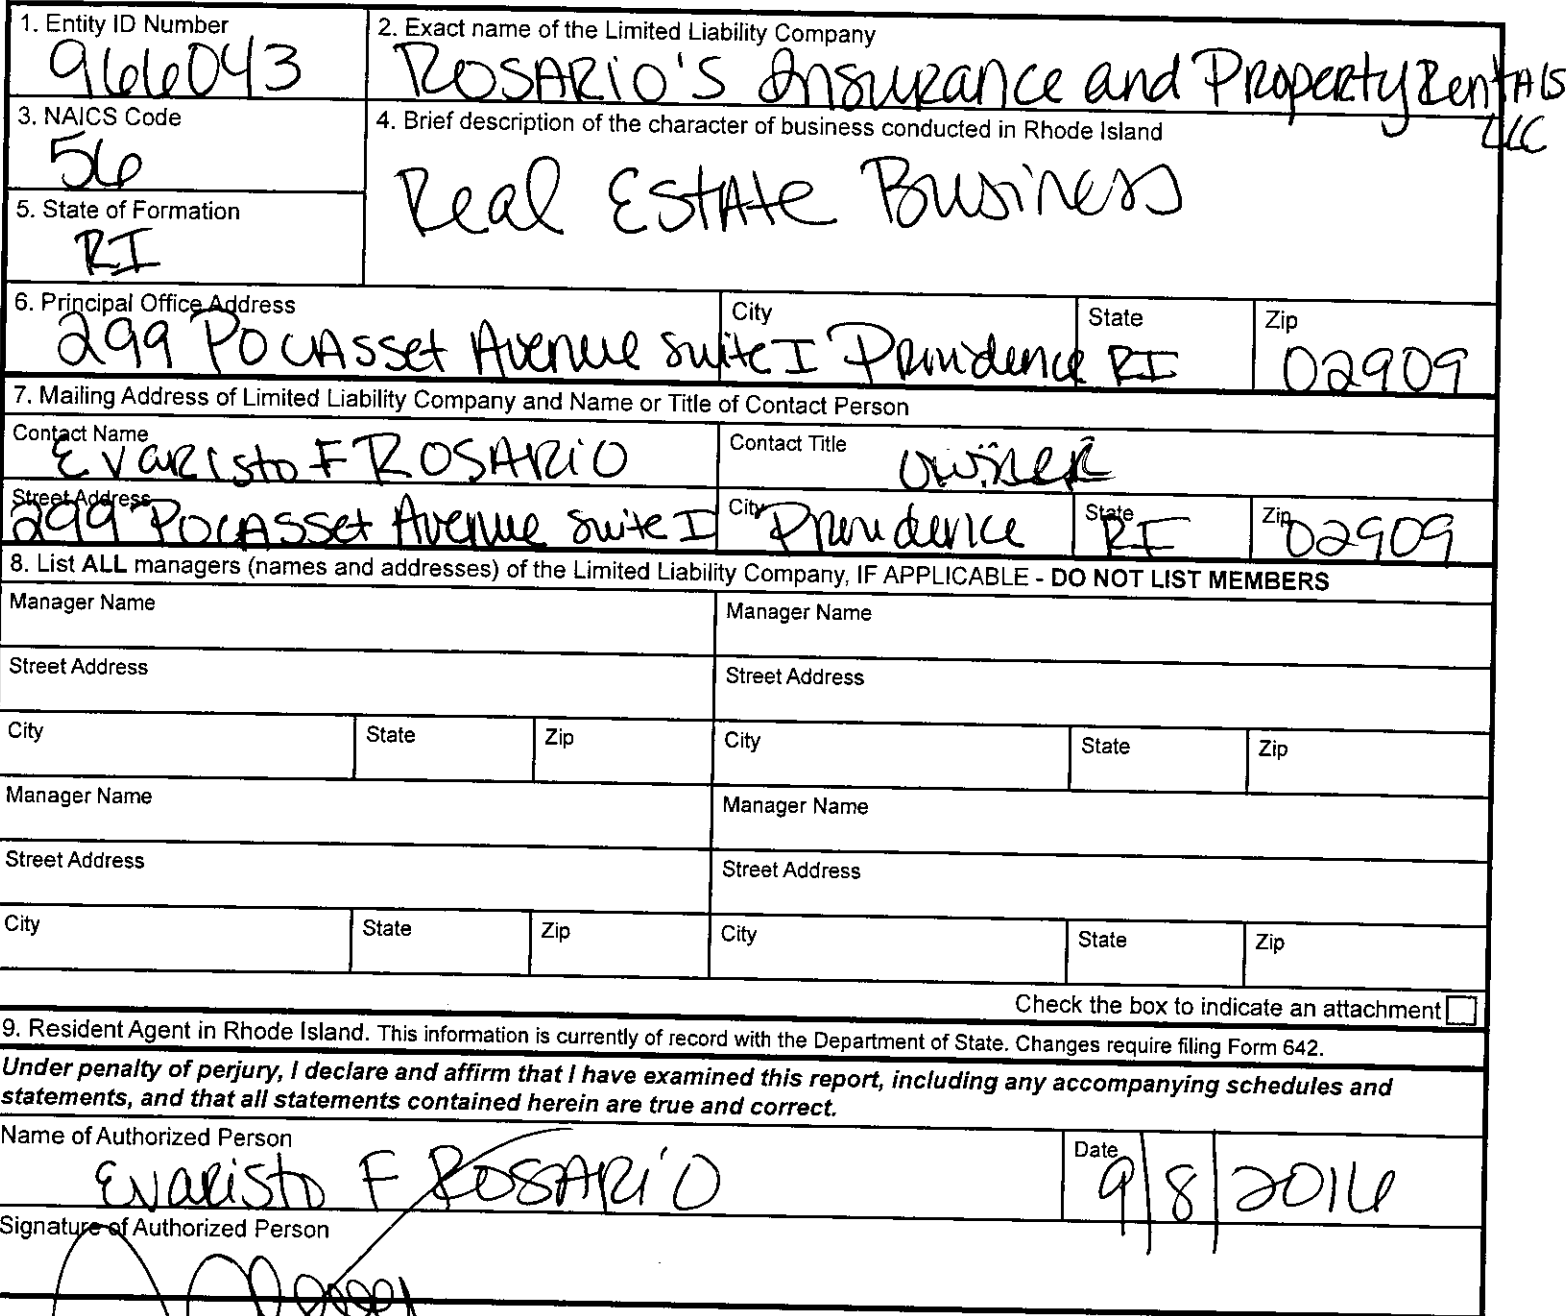 1. Entity ID Number
966043
2. Exact name of the Limited Liability Company
ROSARIO'S Insurance and Property Rentals
LLC
3. NAICS Code
56
4. Brief description of the character of business conducted in Rhode Island
Real Estate Business
5. State of Formation
RI
6. Principal Office Address City State Zip
299 Pocasset Avenue Suite I Providence RI 02909
7. Mailing Address of Limited Liability Company and Name or Title of Contact Person
Contact Name Contact Title
Evaristo F ROSARIO owner
Street Address City State Zip
299 Pocasset Avenue Suite I Providence RI 02909
8. List ALL managers (names and addresses) of the Limited Liability Company, IF APPLICABLE - DO NOT LIST MEMBERS
Manager Name Manager Name
Street Address Street Address
City State Zip City State Zip
Manager Name Manager Name
Street Address Street Address
City State Zip City State Zip
Check the box to indicate an attachment
9. Resident Agent in Rhode Island. This information is currently of record with the Department of State. Changes require filing Form 642.
Under penalty of perjury, I declare and affirm that I have examined this report, including any accompanying schedules and
statements, and that all statements contained herein are true and correct.
Name of Authorized Person Date
Evaristo F ROSARIO 9/8/2016
Signature of Authorized Person